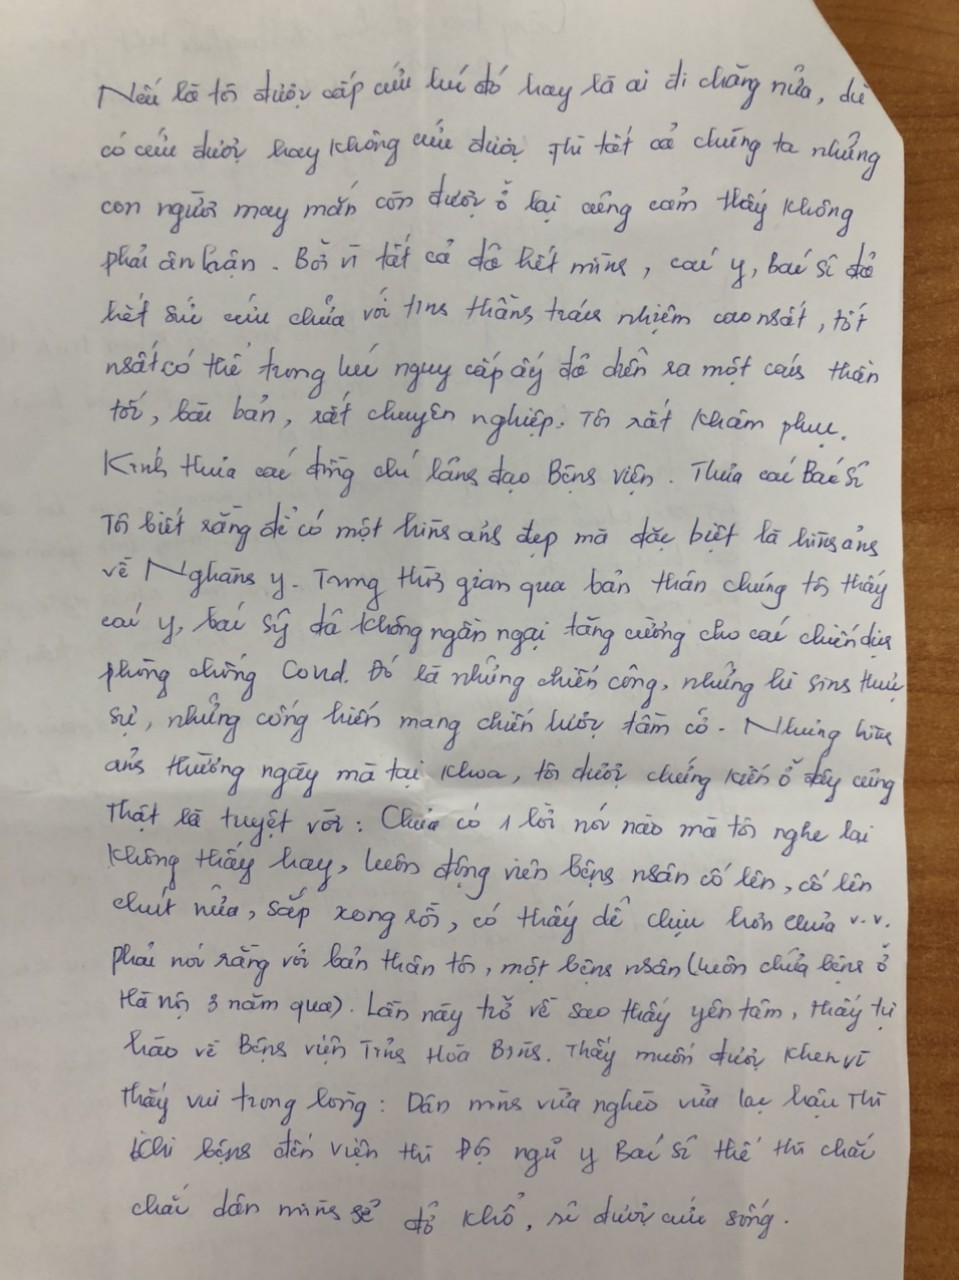 Nếu là tôi được cấp cứu lúc đó hay là ai đi chăng nữa, dù
có cứu được hay không cứu được thì tất cả chúng ta những
con người may mắn còn được ở lại cũng cảm thấy không
phải ân hận. Bởi vì tất cả đã hết mình, các y, bác sĩ đã
hết sức cứu chữa với tinh thần trách nhiệm cao nhất, tốt
nhất có thể trong lúc nguy cấp ấy đã diễn ra một cách thần
tốc, bài bản, rất chuyên nghiệp. Tôi rất khâm phục.
Kính thưa các đồng chí lãnh đạo Bệnh viện. Thưa các Bác sĩ
Tôi biết rằng để có một hình ảnh đẹp mà đặc biệt là hình ảnh
về Nghành y. Trong thời gian qua bản thân chúng tôi thấy
các y, bác sỹ đã không ngần ngại tăng cường cho các chiến dịch
phòng chống Covid. Đó là những chiến công, những hi sinh thực
sự, những cống hiến mang chiến lược tầm cỡ. Nhưng hình
ảnh thường ngày mà tại khoa, tôi được chứng kiến ở đây cũng
thật là tuyệt vời: Chưa có 1 lời nói nào mà tôi nghe lại
không thấy hay, luôn động viên bệnh nhân cố lên, cố lên
chút nữa, sắp xong rồi, có thấy dễ chịu hơn chưa v.v.
phải nói rằng với bản thân tôi, một bệnh nhân (luôn chữa bệnh ở
Hà nội 3 năm qua). Lần này trở về sao thấy yên tâm, thấy tự
hào về Bệnh viện Tỉnh Hòa Bình. Thấy muốn được khen vì
thấy vui trong lòng: Dân mình vừa nghèo vừa lạc hậu thì
khi bệnh đến viện thì Đội ngũ y Bác sĩ thế thì chắc
chắc dân mình sẽ đỡ khổ, sẽ được cứu sống.